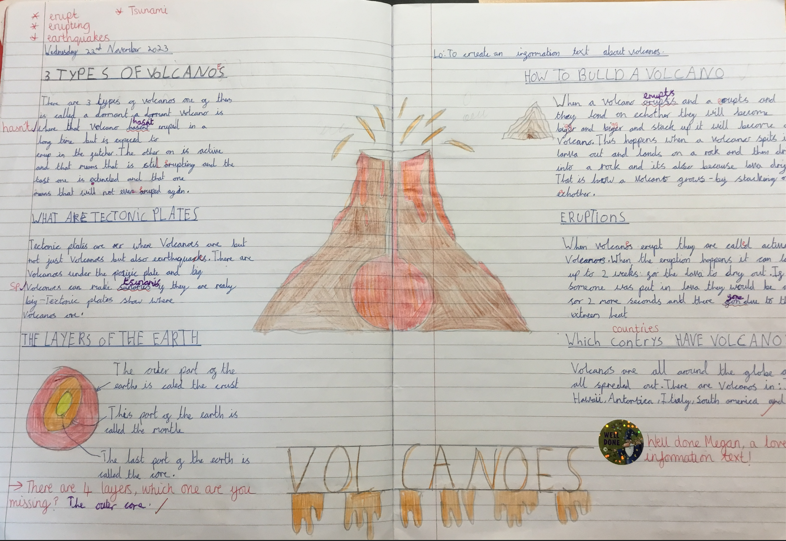 * erupt
* erupting
* earthquakes
* Tsunami
Wednesday 22nd November 2023
3 TYPES OF VOLCANO'S
There are 3 types of volcanos one of them
is called a dormant a dormant Volcano is
hasn't
where that Volcano hasnt erupt in a
long time but is expected to
erup in the futcher. The other on is active
and that means that is still erupting and the
last one is extincted and that one
means that will not erupt agan.
WHAT ARE TECTONIC PLATES
Tectonic plates are where Volcanoes are but
not just Volcanoes but also earthquakes. There are
Volcanoes under the plate and big
sp
Volcanoes can make tsunamis if they are realy
big-Tectonic plates show where
Volcanos are.
THE LAYERS OF THE EARTH
The outer part of the
earths is caled the crust
This part of the earth is
called the mantle.
The last part of the earth is
called the core.
→ There are 4 layers, which one are you
missing? The outer core.
VOLCANOES
Lo: To create an information text about volcanos.
HOW TO BUILD A VOLCANO
erupts
When a Volcano and a erupts and
they land on echother they will become
layer and layer and stack up it will become
Volcano. This happens when a Volcano spits
larva out and lands on a rock and then
into a rock and its also because lava
That is how a Volcano grows-by stacking
echother.
ERUPTIONS
When Volcano's erupt they are called
Volcanos. When the eruption happens it can
up to 2 weeks for the lava to dry out. If
Someone was put in lava they would be
for 2 more seconds and there gone due to
heat
countries
Which contrys HAVE VOLCANO
Volcanos are all around the globe
all spreded out. There are Volcanos in:
Hawaii, Antartica, Italy, South america and
WELL DONE
Well done Megan, a
information text!